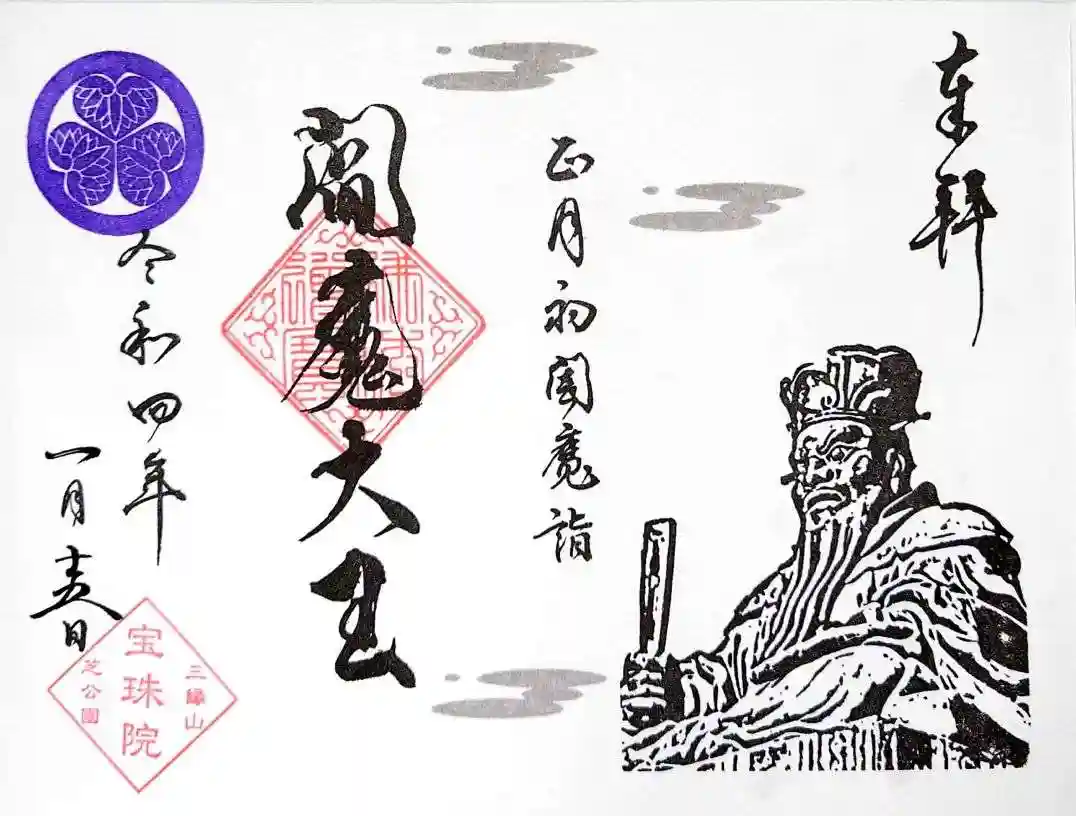 奉拝
正月初閻魔詣
閻魔大王
令和四年
一月十六日
三縁山
宝珠院
芝公園